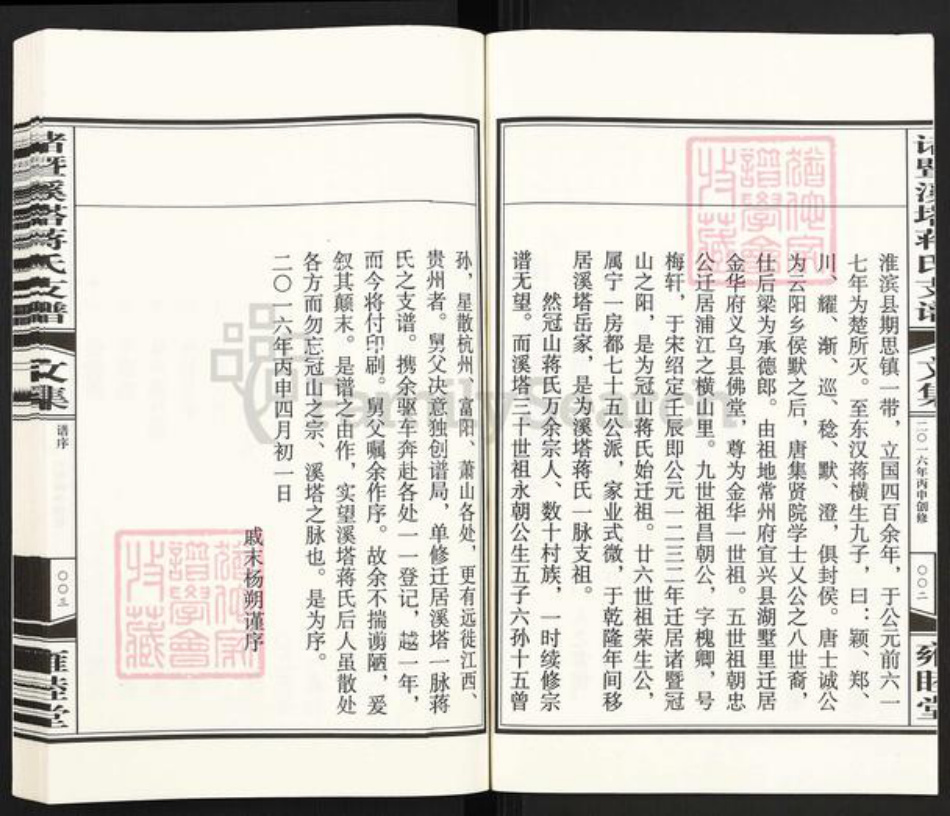 诸暨溪塔蒋氏支谱
文集
二〇一六年丙申创修
〇〇二
雍睦堂
淮滨县期思镇一带，立国四百余年，于公元前六一
七年为楚所灭。至东汉蒋横生九子，曰：颖、郑、
川、耀、渐、巡、稔、默、澄，俱封侯。唐士诚公
为云阳乡侯默之后，唐集贤院学士乂公之八世裔，
仕后梁为承德郎。由祖地常州府宜兴县湖墅里迁居
金华府义乌县佛堂，尊为金华一世祖。五世祖朝忠
公迁居浦江之横山里。九世祖昌朝公，字槐卿，号
梅轩，于宋绍定壬辰即公元一二三二年迁居诸暨冠
山之阳，是为冠山蒋氏始迁祖。廿六世祖荣生公，
属宁一房都七十五公派，家业式微，于乾隆年间移
居溪塔岳家，是为溪塔蒋氏一脉支祖。
然冠山蒋氏万余宗人、数十村族，一时续修宗
谱无望。而溪塔三十世祖永朝公生五子六孙十五曾
孙，星散杭州、富阳、萧山各处，更有远徙江西、
贵州者。舅父决意独创谱局，单修迁居溪塔一脉蒋
氏之支谱。携余驱车奔赴各处一一登记，越一年，
而今将付印刷。舅父嘱余作序。故余不揣谫陋，爰
叙其颠末。是谱之由作，实望溪塔蒋氏后人虽散处
各方而勿忘冠山之宗、溪塔之脉也。是为序。
二〇一六年丙申四月初一日
戚末杨朔谨序
诸暨溪塔蒋氏支谱
文集
谱序
〇〇三
雍睦堂
FamilySearch